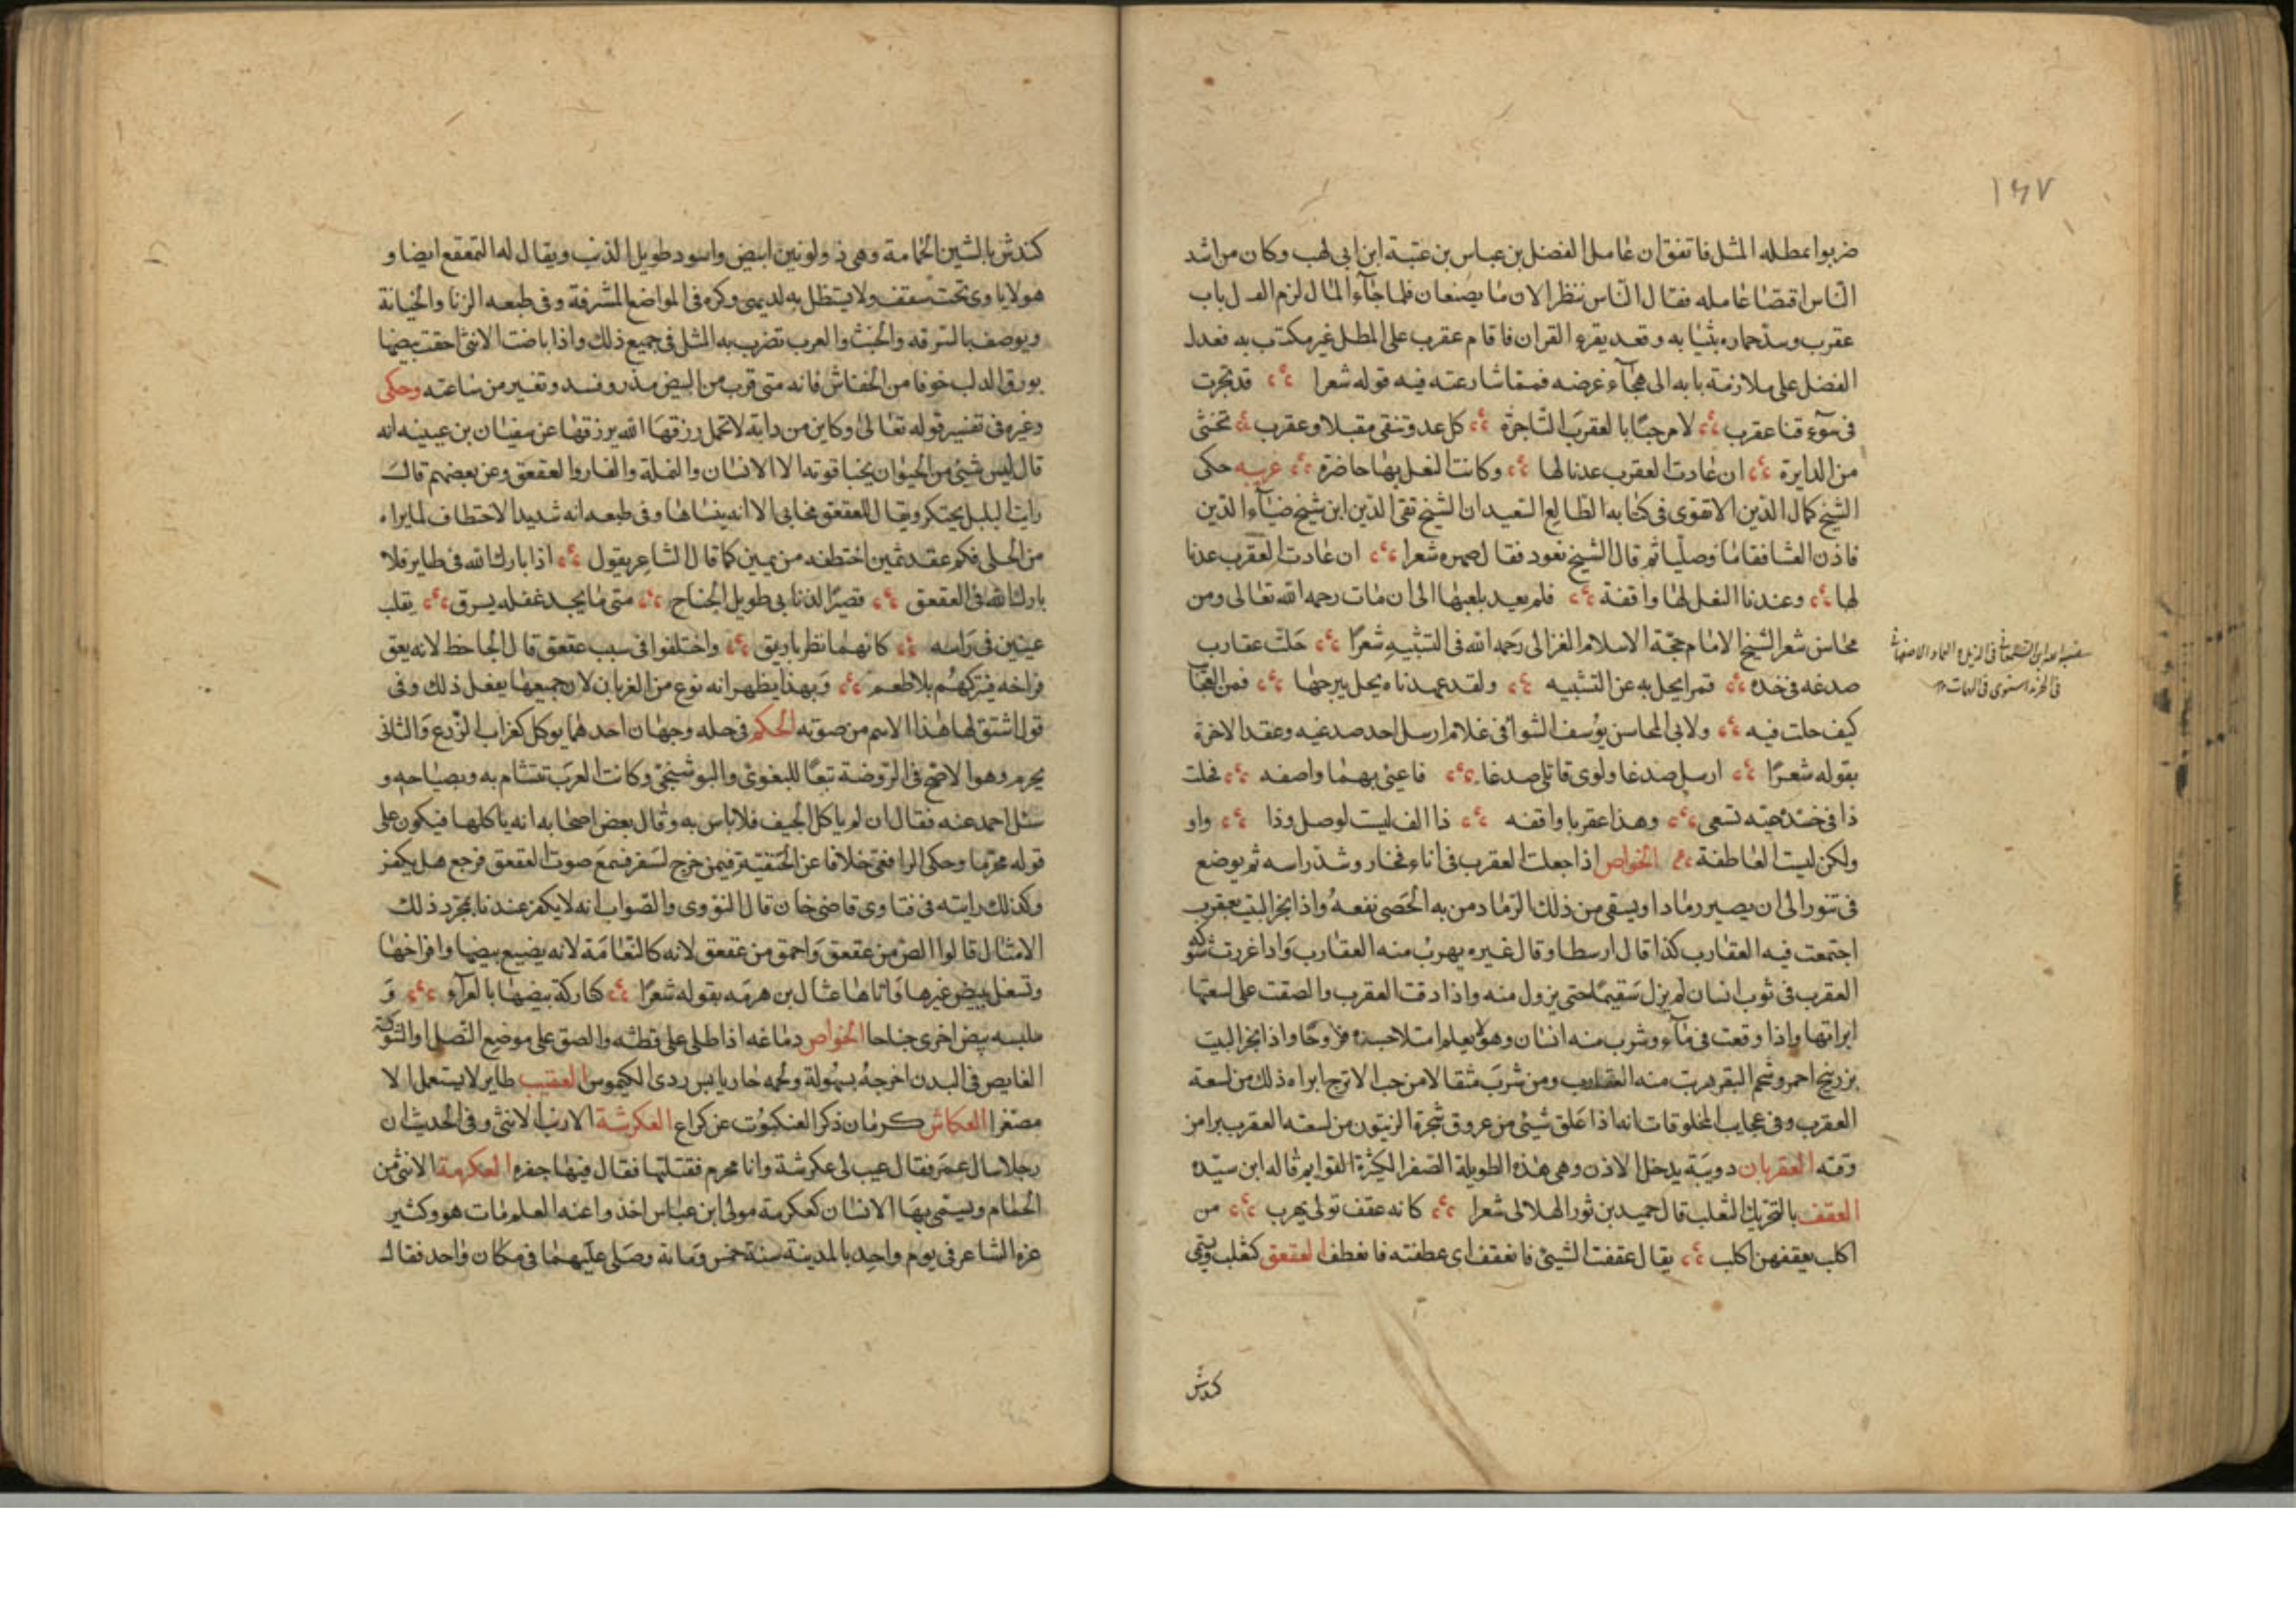 ١٤٧
ضربوا بمطله المثل فاتفق ان عامل الفضل بن عباس بن عتبة ابن ابى لهب وكان من اشد
الناس اقتضا عامله فقال الناس ننظر الان ما يصنعان فلما جآء المال لزم الفضل باب
عقرب وسد حماره بثيابه وقعد يقرء القران فاقام عقرب على المطل غير مكترث به فعدل
الفضل على ملازمة بابه الى هجآء عرضه فمما شاع عنه فيه قوله شعرا قد تجرت
فى سوء قنا عقرب لا مرحبًا بالعقرب التاجرة كل عدو تنقى مقبلا وعقرب تخشى
من الدايرة ان عادت العقرب عدنا لها وكانت النعل بها حاضرة غريبه حكى
الشيخ كمال الدين الادفوى فى كتابه الطالع السعيد ان الشيخ تقى الدين ابن شيخ ضيآء الدين
فاذن العشا فقاما وصليا ثم قال الشيخ نعود فقال صهره شعرا ان عادت العقرب عدنا
لها وعندنا النعل لها واقفة فلم يعد يلعبها الى ان مات رحمه الله تعالى ومن
محاسن شعر الشيخ الامام حجة الاسلام الغزالى رحمه الله فى التشبيه شعرًا حلت عقارب
صدغه فى خده قمرا يجل به عن التشبيه ولقد عهدناه يحل ببرجها فمن العجآب
كيف حلت فيه ولابى المحاسن يوسف الشوا فى غلام ارسل احد صدغيه وعقد الاخرة
بقوله شعرًا ارسل صدغا ولوى قاتلى صدغا فاعيى بهما واصفه فخلت
ذا فى خده حية تسعى وهذا عقربا واقفه ذا الف ليست لوصل وذا واو
ولكن ليست العاطفة الخواص اذا جعلت العقرب فى اناء فخار وشد راسه ثم يوضع
فى تنور الى ان يصير رمادا ويسقى من ذلك الرماد من به الحصى نفعه واذا بخر البيت بعقرب
اجتمعت فيه العقارب كذا قال ارسطا وقال غيره يهرب منه العقارب واذا غرزت شوكة
العقرب فى ثوب انسان لم يزل سقيما حتى يزول منه واذا دقت العقرب والصقت على لسعتها
ابراتها واذا وقعت فى مآء وشرب منه انسان وهو لا يعلم امتلا جسده قروحًا واذا بخر البيت
بزرنيخ احمر وشحم البقر هربت منه العقارب ومن شرب مثقالا من حب الاترج ابراه ذلك من لسعة
العقرب وفى عجايب المخلوقات انه اذا علق شيئ من عروق شجرة الزيتون من لسعته العقرب برا من
وقته العقربان دويبة يدخل الاذن وهى هذه الطويلة الصفر الكثيرة القوايم قاله ابن سيده
العقف بالتحريك الثعلب قال حميد بن ثور الهلالى شعرا كانه عقف تولى يهرب من
اكلب يعقفهن اكلب يقال عقفت الشيئ فانعقف اى عطفته فانعطف العقعق كثعلب ويسمى
كندش
كندش بالشين المعجمة وهى ذو لونين ابيض واسود طويل الذنب ويقال له القعقع ايضا و
هو لا ياوى تحت سقف ولا يستظل به لديهى وكره فى المواضع المشرفة وفى طبعه الزنا والخيانة
ويوصف بالسرقه والخبث والعرب تضرب به المثل فى جميع ذلك واذا باضت الانثى اخفت بيضها
بورق الدلب خوفا من الخفاش فانه متى قرب من البيض مذر وفسد وتغير من ساعته وحكى
وغيره فى تفسير قوله تعالى وكاين من دابة لا تحمل رزقها الله يرزقها عن سفيان بن عيينه انه
قال ليس شيئ من الحيوان يخبا قوته الا الانسان والنملة والفار والعقعق وعن بعضهم قال
رايت البلبل يحتكر ويقال للعقعق مخابى الا انه ينساها وفى طبعه انه شديد الاختطاف لما يراه
من الحلى فكم عقد ثمين اختطفه من يمين كما قال الشاعر يقول اذا بارك الله فى طاير فلا
بارك الله فى العقعق قصير الذنابى طويل الجناح متى ما يجد غفله يسرق يقلب
عينين فى راسه كانهما نظر بازيق واختلفوا فى سبب عقعق قال الجاحظ لانه يعق
فراخه فيتركهم بلا طعم وبهذا يظهر انه نوع من الغربان لان جميعها يفعل ذلك وفى
قول اشتق لها هذا الاسم من صوته الحكم فى حله وجهان احدهما يوكل كغراب الزرع والثانى
يحرم وهو الاصح فى الروضة تبعًا للبغوى والبوشنجى وكانت العرب تتشام به وبصياحه و
سئل احمد عنه فقال ان لم ياكل الجيف فلا باس به وقال بعض اصحابه انه ياكلها فيكون على
قوله محرما وحكى الرافعى خلافا عن الحنفية فيمن خرج لسفر فسمع صوت العقعق فرجع هل يكفر
وكذلك رايته فى فتاوى قاضى خان قال النووى والصواب انه لا يكفر عندنا بمجرد ذلك
الامثال قالوا الص من عقعق واحمق من عقعق لانه كالنعامة لانه يضيع بيضها وافراخها
وتشغل ببيض غيرها واياها عنا ابن هرمه بقوله شعرًا كتاركة بيضها بالعرآء و
ملبسه بيض اخرى جناحا الخواص دماغه اذا طلى على قطنه والصق على موضع النصل او الشوكة
الغايص فى البدن اخرجه بسهولة ولحمه حار يابس ردى الكيموس العقيب طاير لا يستعمل الا
مصغرا العكاش كرمان ذكر العنكبوت عن كراع العكرشة الارنب الانثى وفى الحديث ان
رجلا سال عمر فقال عيب لى عكرشة وانا محرم فقتلتها فقال فيها جفره العكرمة الانثى من
الحمام ويسمى بها الانسان كعكرمة مولى ابن عباس اخذوا عنه العلم مات هو وكثير
عزه الشاعر فى يوم واحد بالمدينة سنة خمس ومائة وصلى عليهما فى مكان واحد فقال